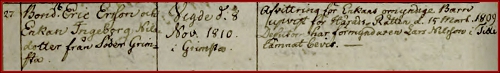 27. Bond. Eric Ersson och
Enkan Ingeborg Nils
dotter från Söder Grim
sta.
Vigde d. 8
Nov. 1810.
i Grimsta.
Afvittring för Enkans omyndige Barn
uppvist för Härads Rätten d. 15 Mart. 1809
har förmyndaren Lars Nilsson i
lämnat bevis. —